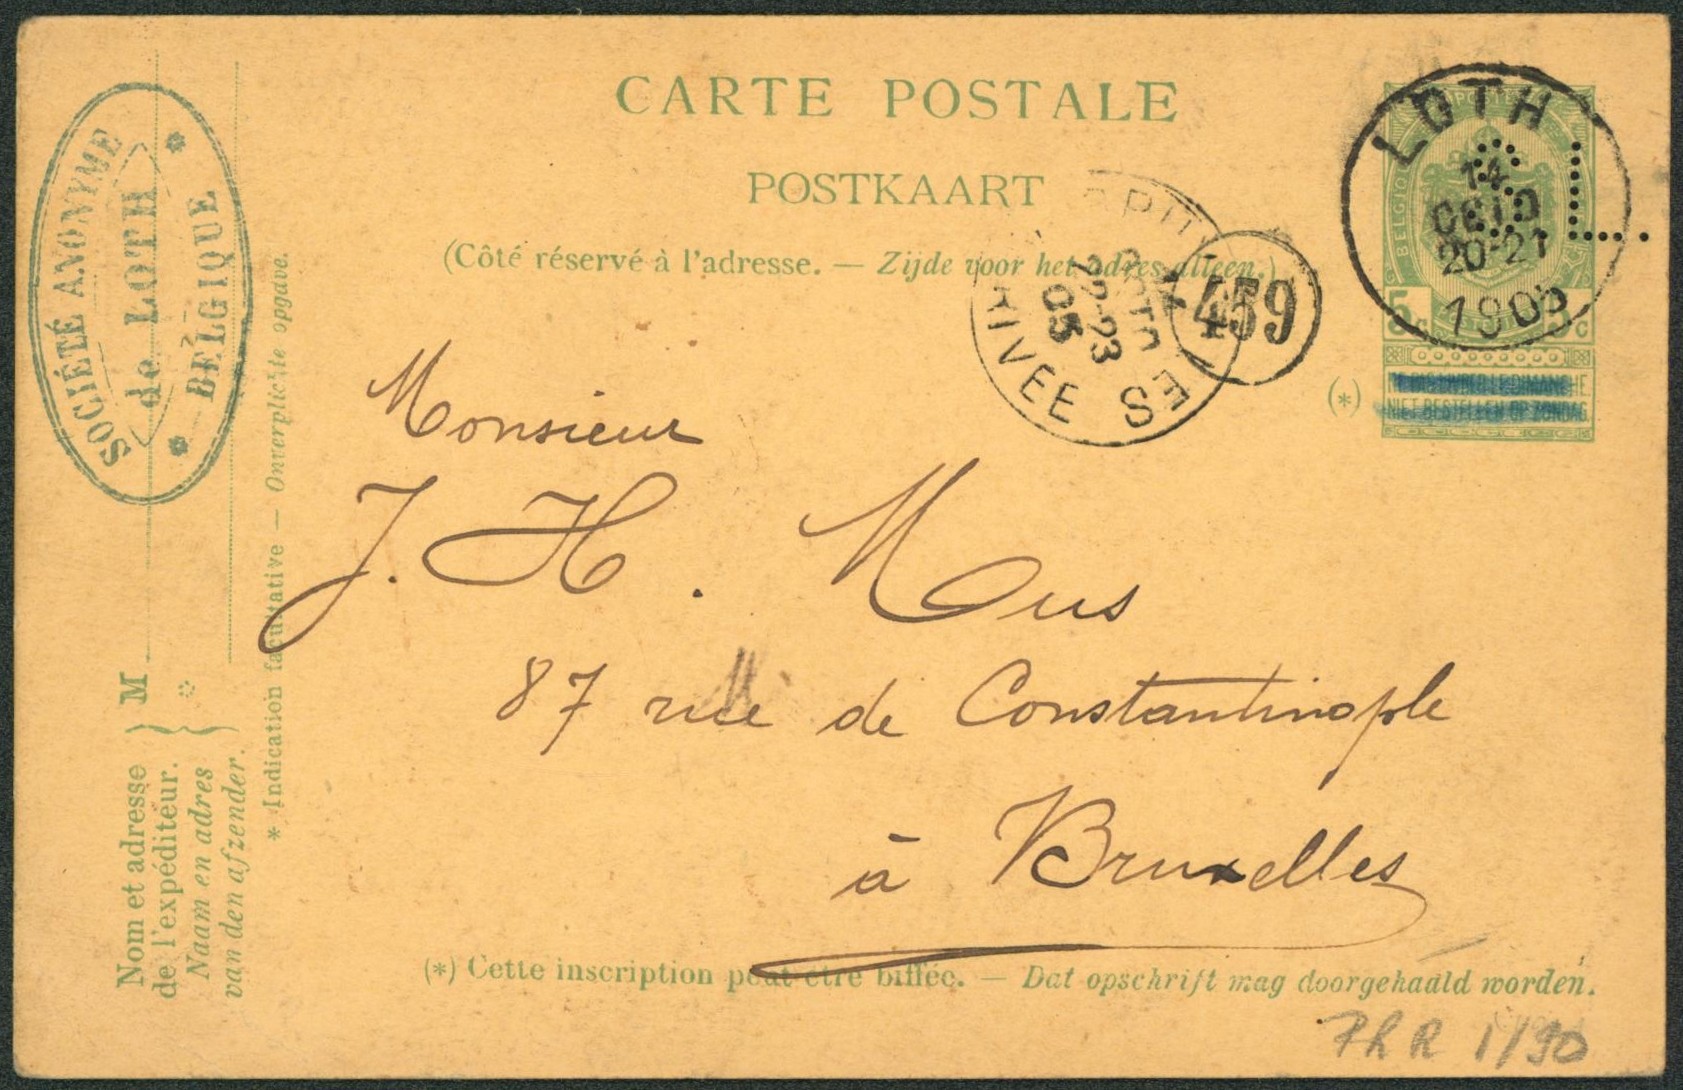 CARTE POSTALE
POSTKAART
(Côté réservé à l'adresse. — Zijde voor het adres alleen.)
SOCIÉTÉ ANONYME
de LOTH
BELGIQUE
LOTH
14
OCTO
20-21
1905
22-23
05
459
5c 5c
NE PAS LIVRER LE DIMANCHE
NIET BESTELLEN OP ZONDAG
(*)
Monsieur
J. H. Mus
87 rue de Constantinople
à Bruxelles
M
Nom et adresse
de l'expéditeur.
Naam en adres
van den afzender.
* Indication facultative — Onverplichte opgave.
(*) Cette inscription peut être biffée. — Dat opschrift mag doorgehaald worden.
PhR 1/90